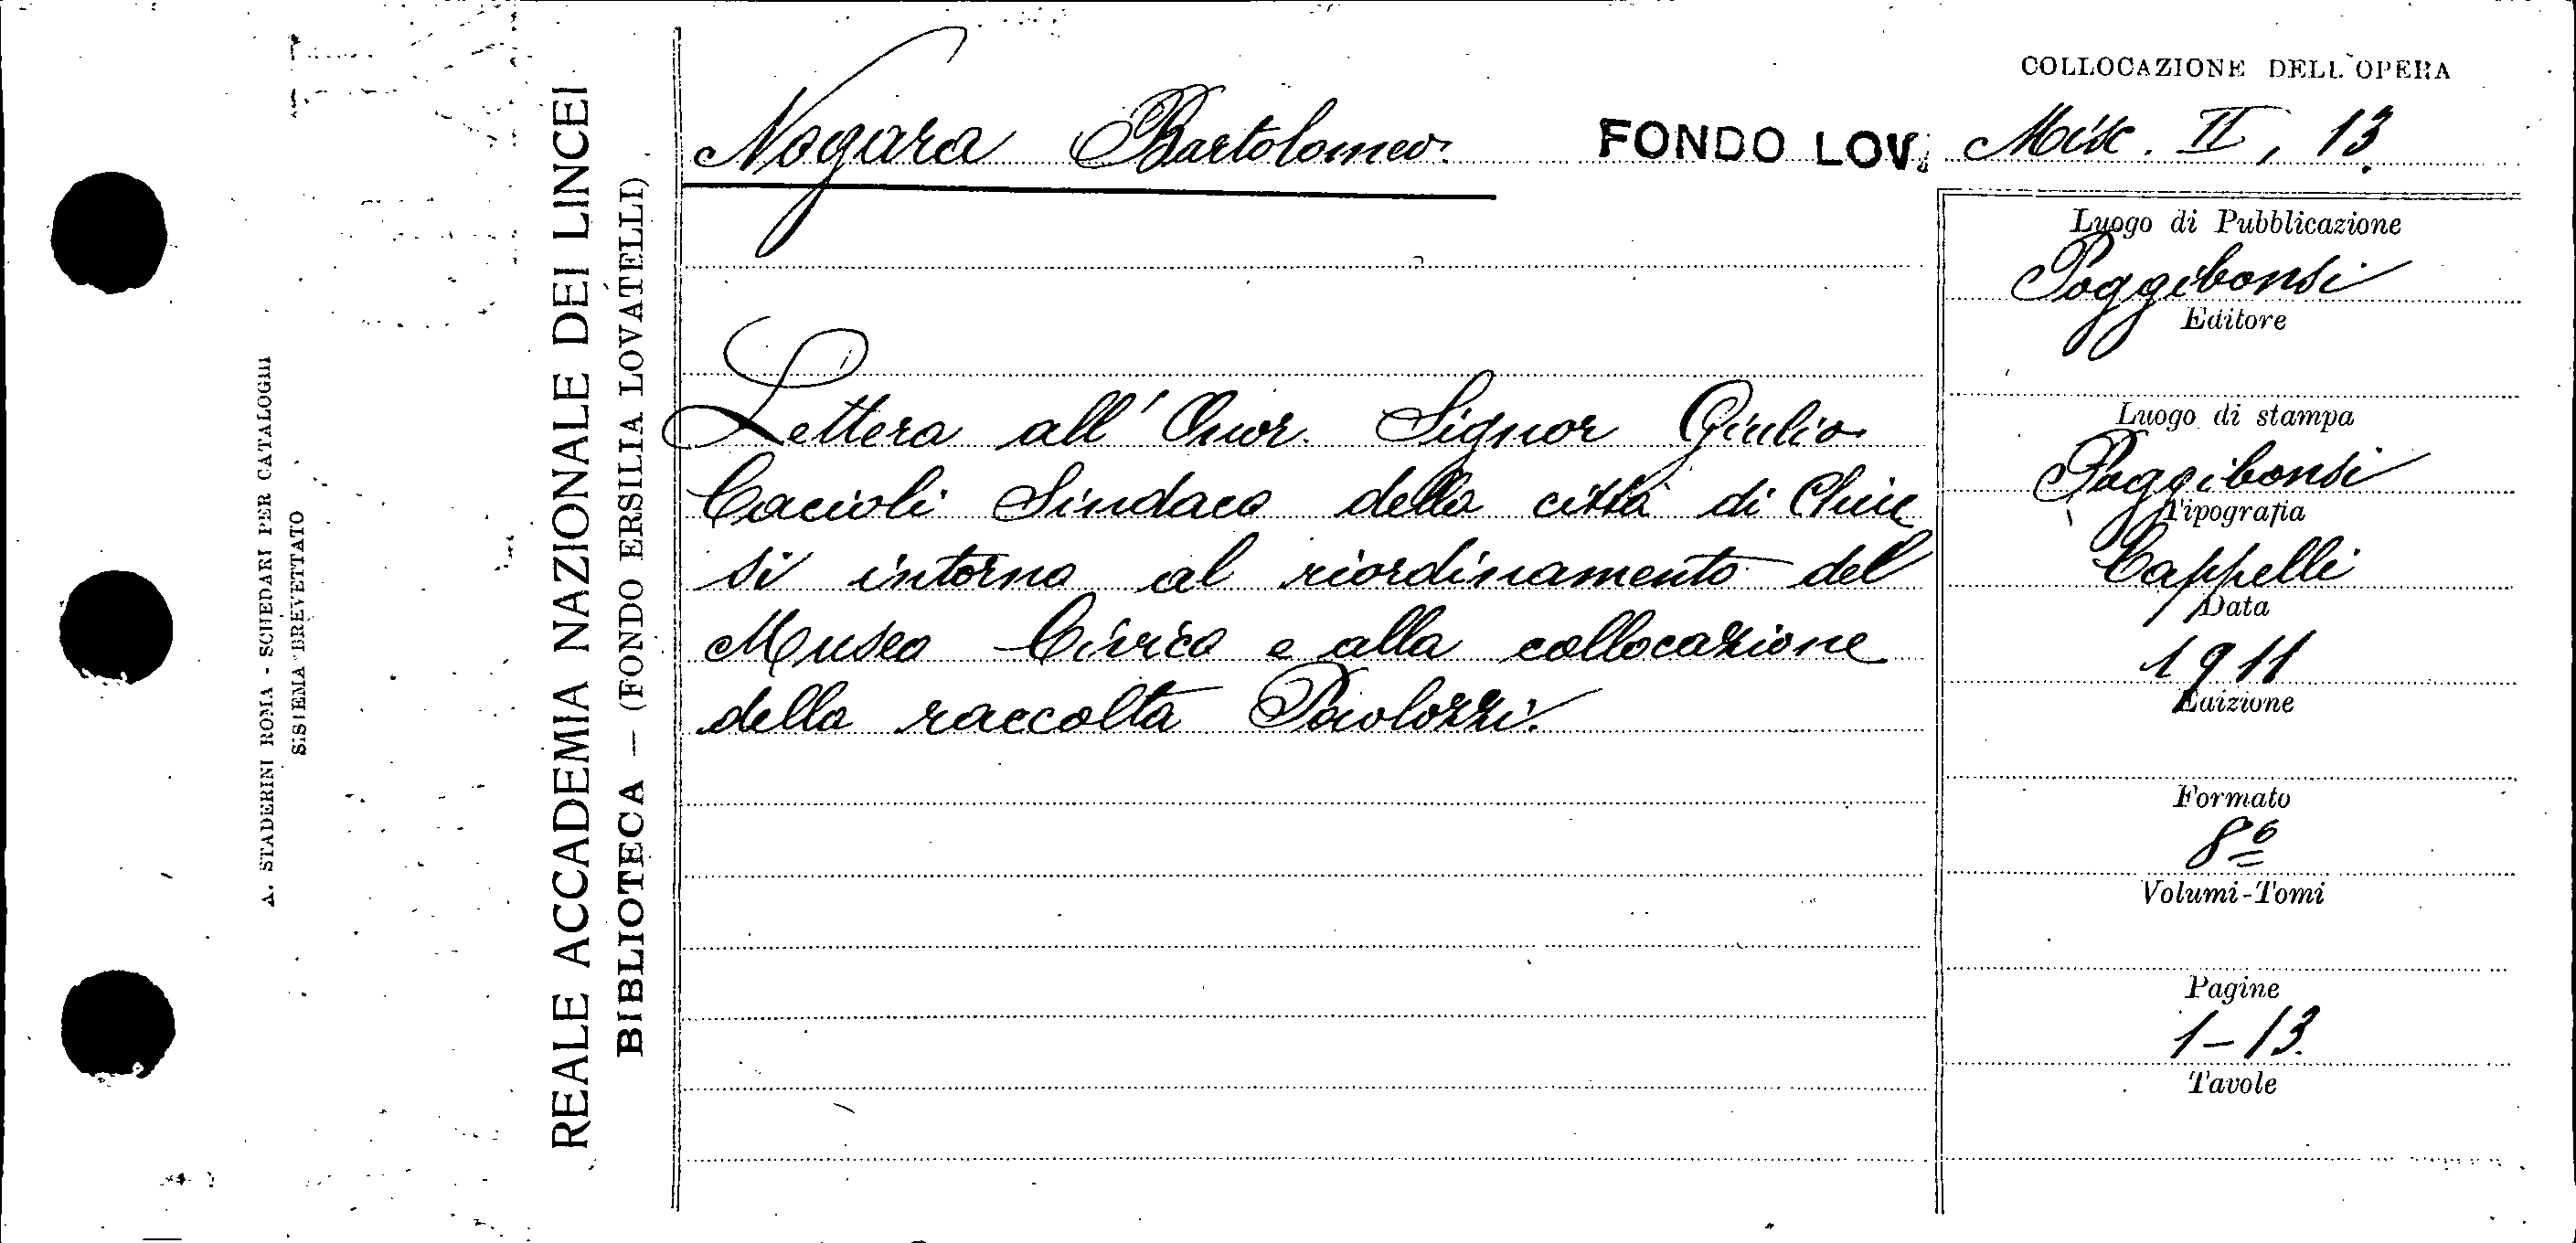 COLLOCAZIONE DELL'OPERA
Nogara Bartolomeo.
FONDO LOV. Misc. II, 13.
Lettera all'Onor. Signor Giulio
Cacioli Sindaco della città di Chiu
si intorno al riordinamento del
Museo Civico e alla collocazione
della raccolta Paolozzi.
Luogo di Pubblicazione
Poggibonsi
Editore
Luogo di stampa
Poggibonsi
Tipografia
Cappelli
Data
1911
Edizione
Formato
8º
Volumi-Tomi
Pagine
1-13.
Tavole
REALE ACCADEMIA NAZIONALE DEI LINCEI
BIBLIOTECA — (FONDO ERSILIA LOVATELLI)
A. STADERINI ROMA - SCHEDARI PER CATALOGHI
SISTEMA BREVETTATO